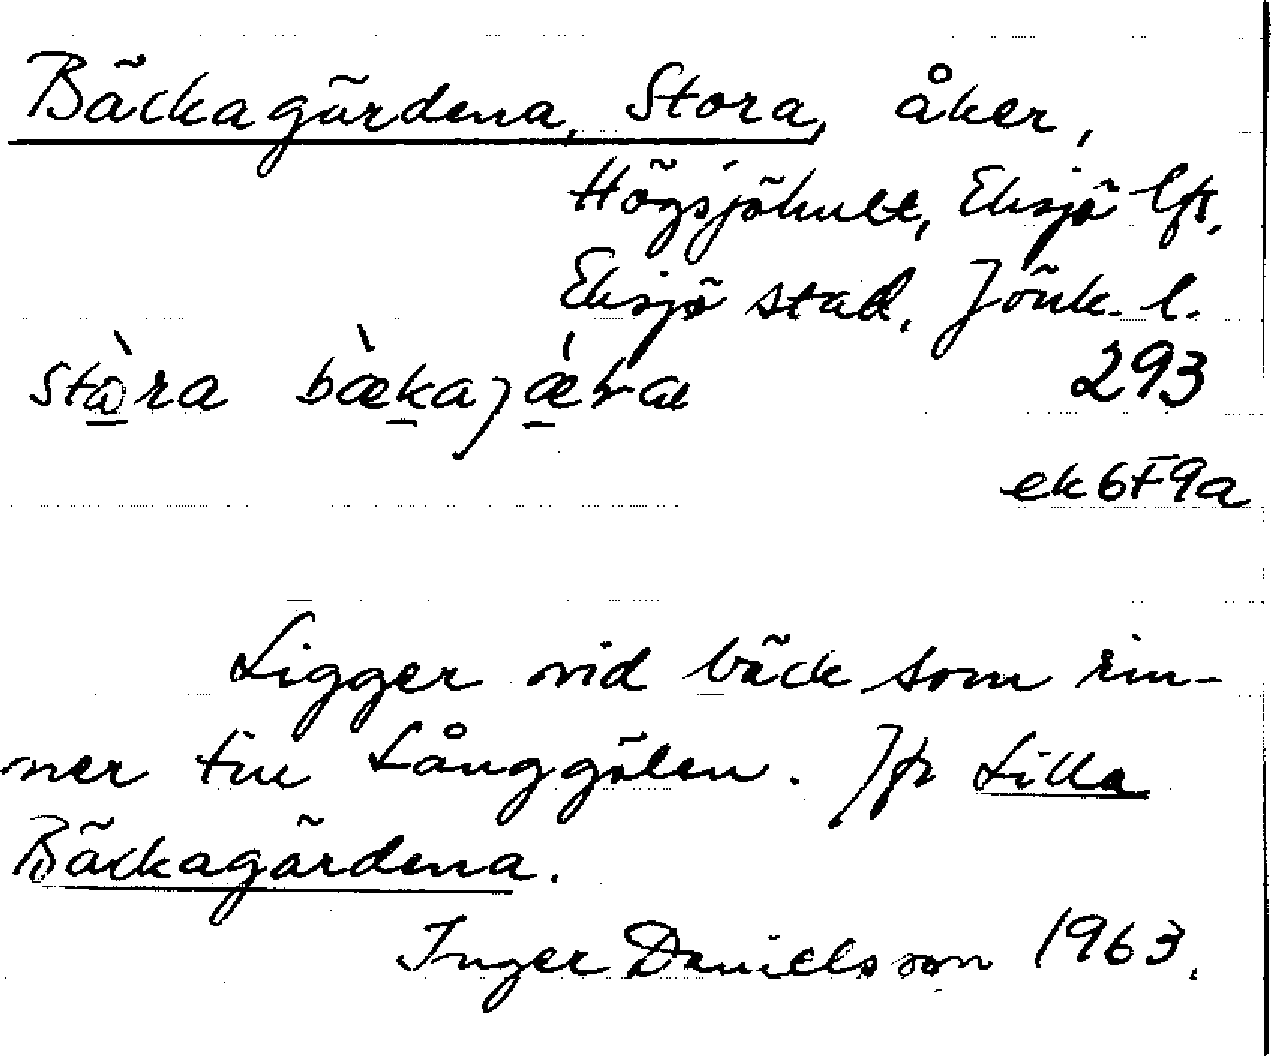 Bäckagärdena, Stora, åker,
Högsjöhult, Eksjö lfs.
Eksjö stad. Jönk. l.
293
ek6F9a
Ligger vid bäck som rin-
ner till Långgölen. Jfr Lilla
Bäckagärdena.
Inger Danielsson 1963.